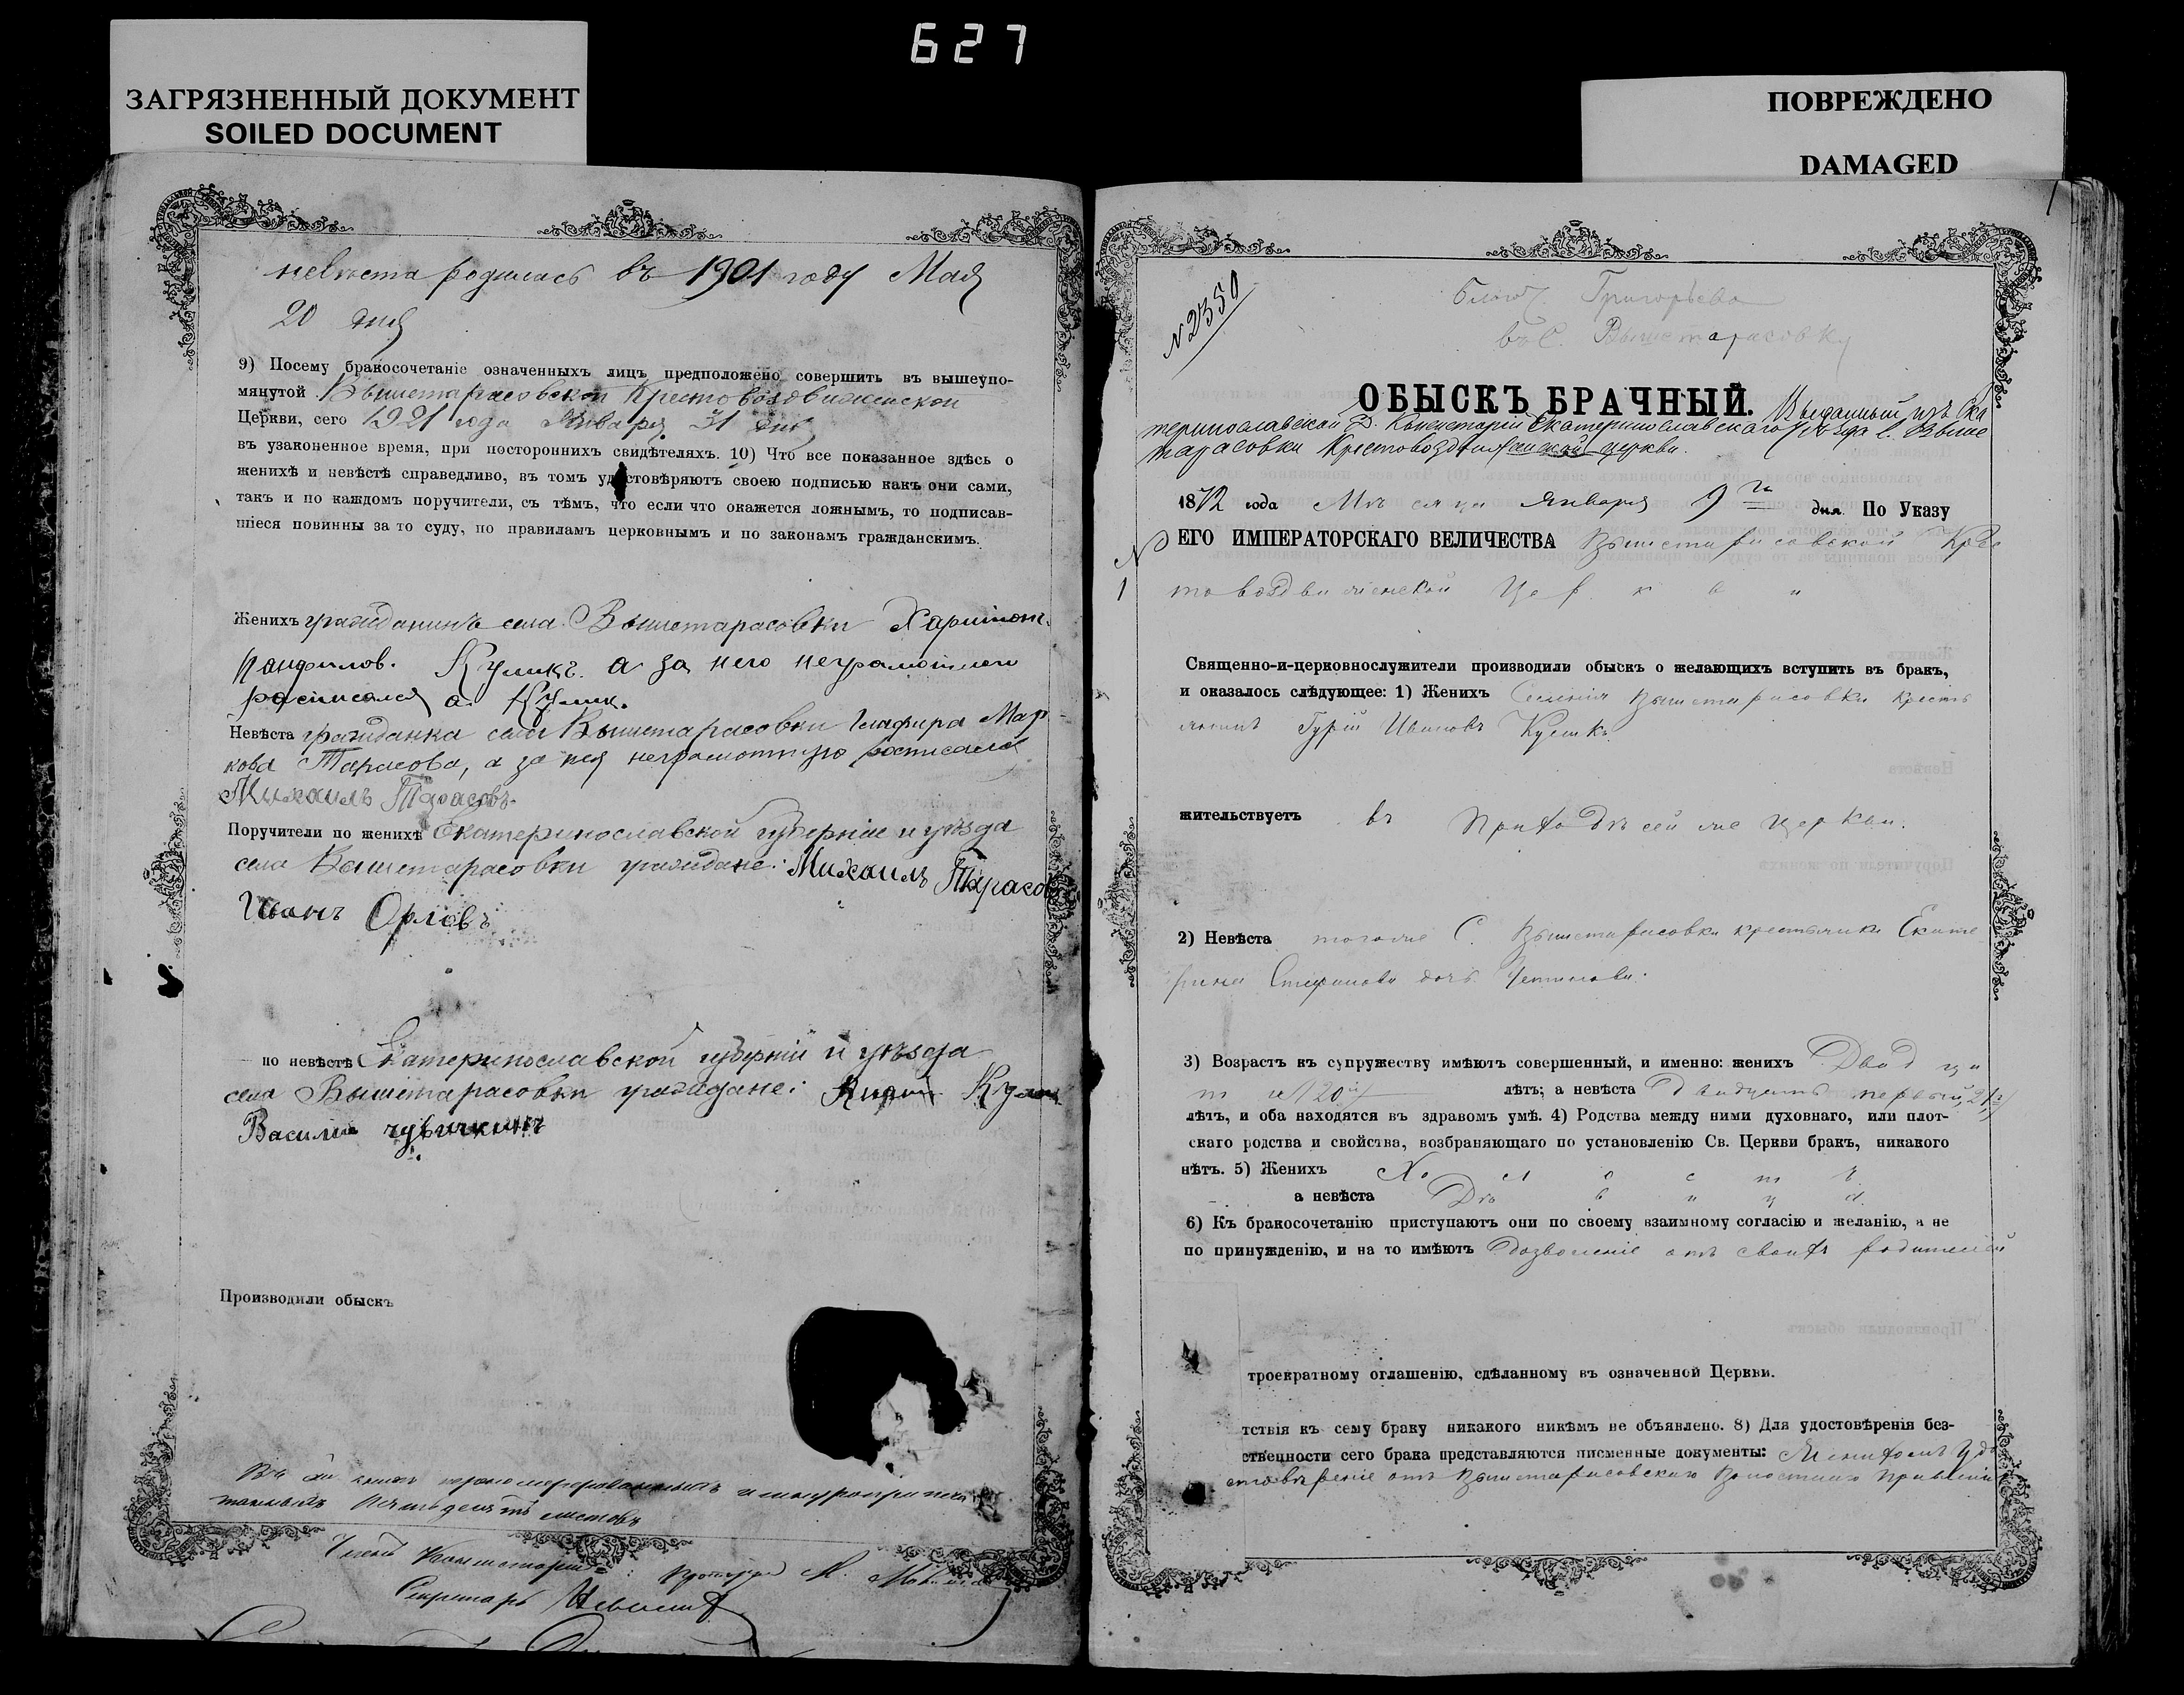 627
ЗАГРЯЗНЕННЫЙ ДОКУМЕНТ
SOILED DOCUMENT
ПОВРЕЖДЕНО
DAMAGED
невѣста родилась въ 1901 году Мая
20 дня
9) Посему бракосочетаніе означенныхъ лицъ предположено совершить въ вышеупо-
мянутой Вышетарасовской Крестовоздвиженской
Церкви, сего 1921 года Января 31 дня
въ узаконенное время, при постороннихъ свидѣтеляхъ. 10) Что все показанное здѣсь о
женихѣ и невѣстѣ справедливо, въ томъ удостовѣряютъ своею подписью какъ они сами,
такъ и по каждомъ поручители, съ тѣмъ, что если что окажется ложнымъ, то подписав-
шіеся повинны за то суду, по правиламъ церковнымъ и по законамъ гражданскимъ.
Женихъ гражданинъ села Вышетарасовки Харитонъ
Панфилов. Куликъ а за него неграмотнаго
росписался а. Кулик.
Невѣста гражданка села Вышетарасовки Глафира Мар
кова Тарасова, а за нея неграмотную росписался
Михаилъ Тарасовъ.
Поручители по женихѣ Екатеринославской губерніи и уѣзда
села Вышетарасовки граждане: Михаилъ Тарасов
Иванъ Орловъ
по невѣстѣ Екатеринославской губерніи и уѣзда
села Вышетарасовки граждане: Кулик
Василій
Производили обыскъ
листовъ
Членъ Консисторіи: М.
Секретарь
N 2350
Благоч. Григорьева
въ С. Вышетарасовку
ОБЫСКЪ БРАЧНЫЙ. Выданный изъ Ека
теринославской Д. Консисторіи Екатеринославского уѣзда с. Выше
тарасовки Крестовоздвиженской церкви.
1872 года Мѣсяца Января 9го дня. По Указу
ЕГО ИМПЕРАТОРСКАГО ВЕЛИЧЕСТВА Вышетарасовской Крес
N 1 товоздвиженской Церкви
Священно-и-церковнослужители производили обыскъ о желающихъ вступить въ бракъ,
и оказалось слѣдующее: 1) Женихъ Селенія Вышетарасовки кресть
янинъ Гурій Ивановъ Куликъ
жительствуетъ въ приходѣ сей же Церкви.
2) Невѣста тогоже С. Вышетарасовки крестьянка Екате
рина Стефанова дочь
3) Возрастъ къ супружеству имѣютъ совершенный, и именно: женихъ Двад ца
т ь (20й) лѣтъ; а невѣста Двадцать первый, 21й)
лѣтъ, и оба находятся въ здравомъ умѣ. 4) Родства между ними духовнаго, или плот-
скаго родства и свойства, возбраняющаго по установленію Св. Церкви бракъ, никакого
нѣтъ. 5) Женихъ Холостъ
а невѣста Дѣвица
6) Къ бракосочетанію приступаютъ они по своему взаимному согласію и желанію, а не
по принужденію, и на то имѣютъ дозволеніе отъ своихъ родителей
троекратному оглашенію, сдѣланному въ означенной Церкви.
тствія къ сему браку никакого никѣмъ не объявлено. 8) Для удостовѣренія без-
ственности сего брака представляются писменные документы: Женихомъ Удо
стовѣреніе отъ Вышетарасовскаго Волостнаго Правленія